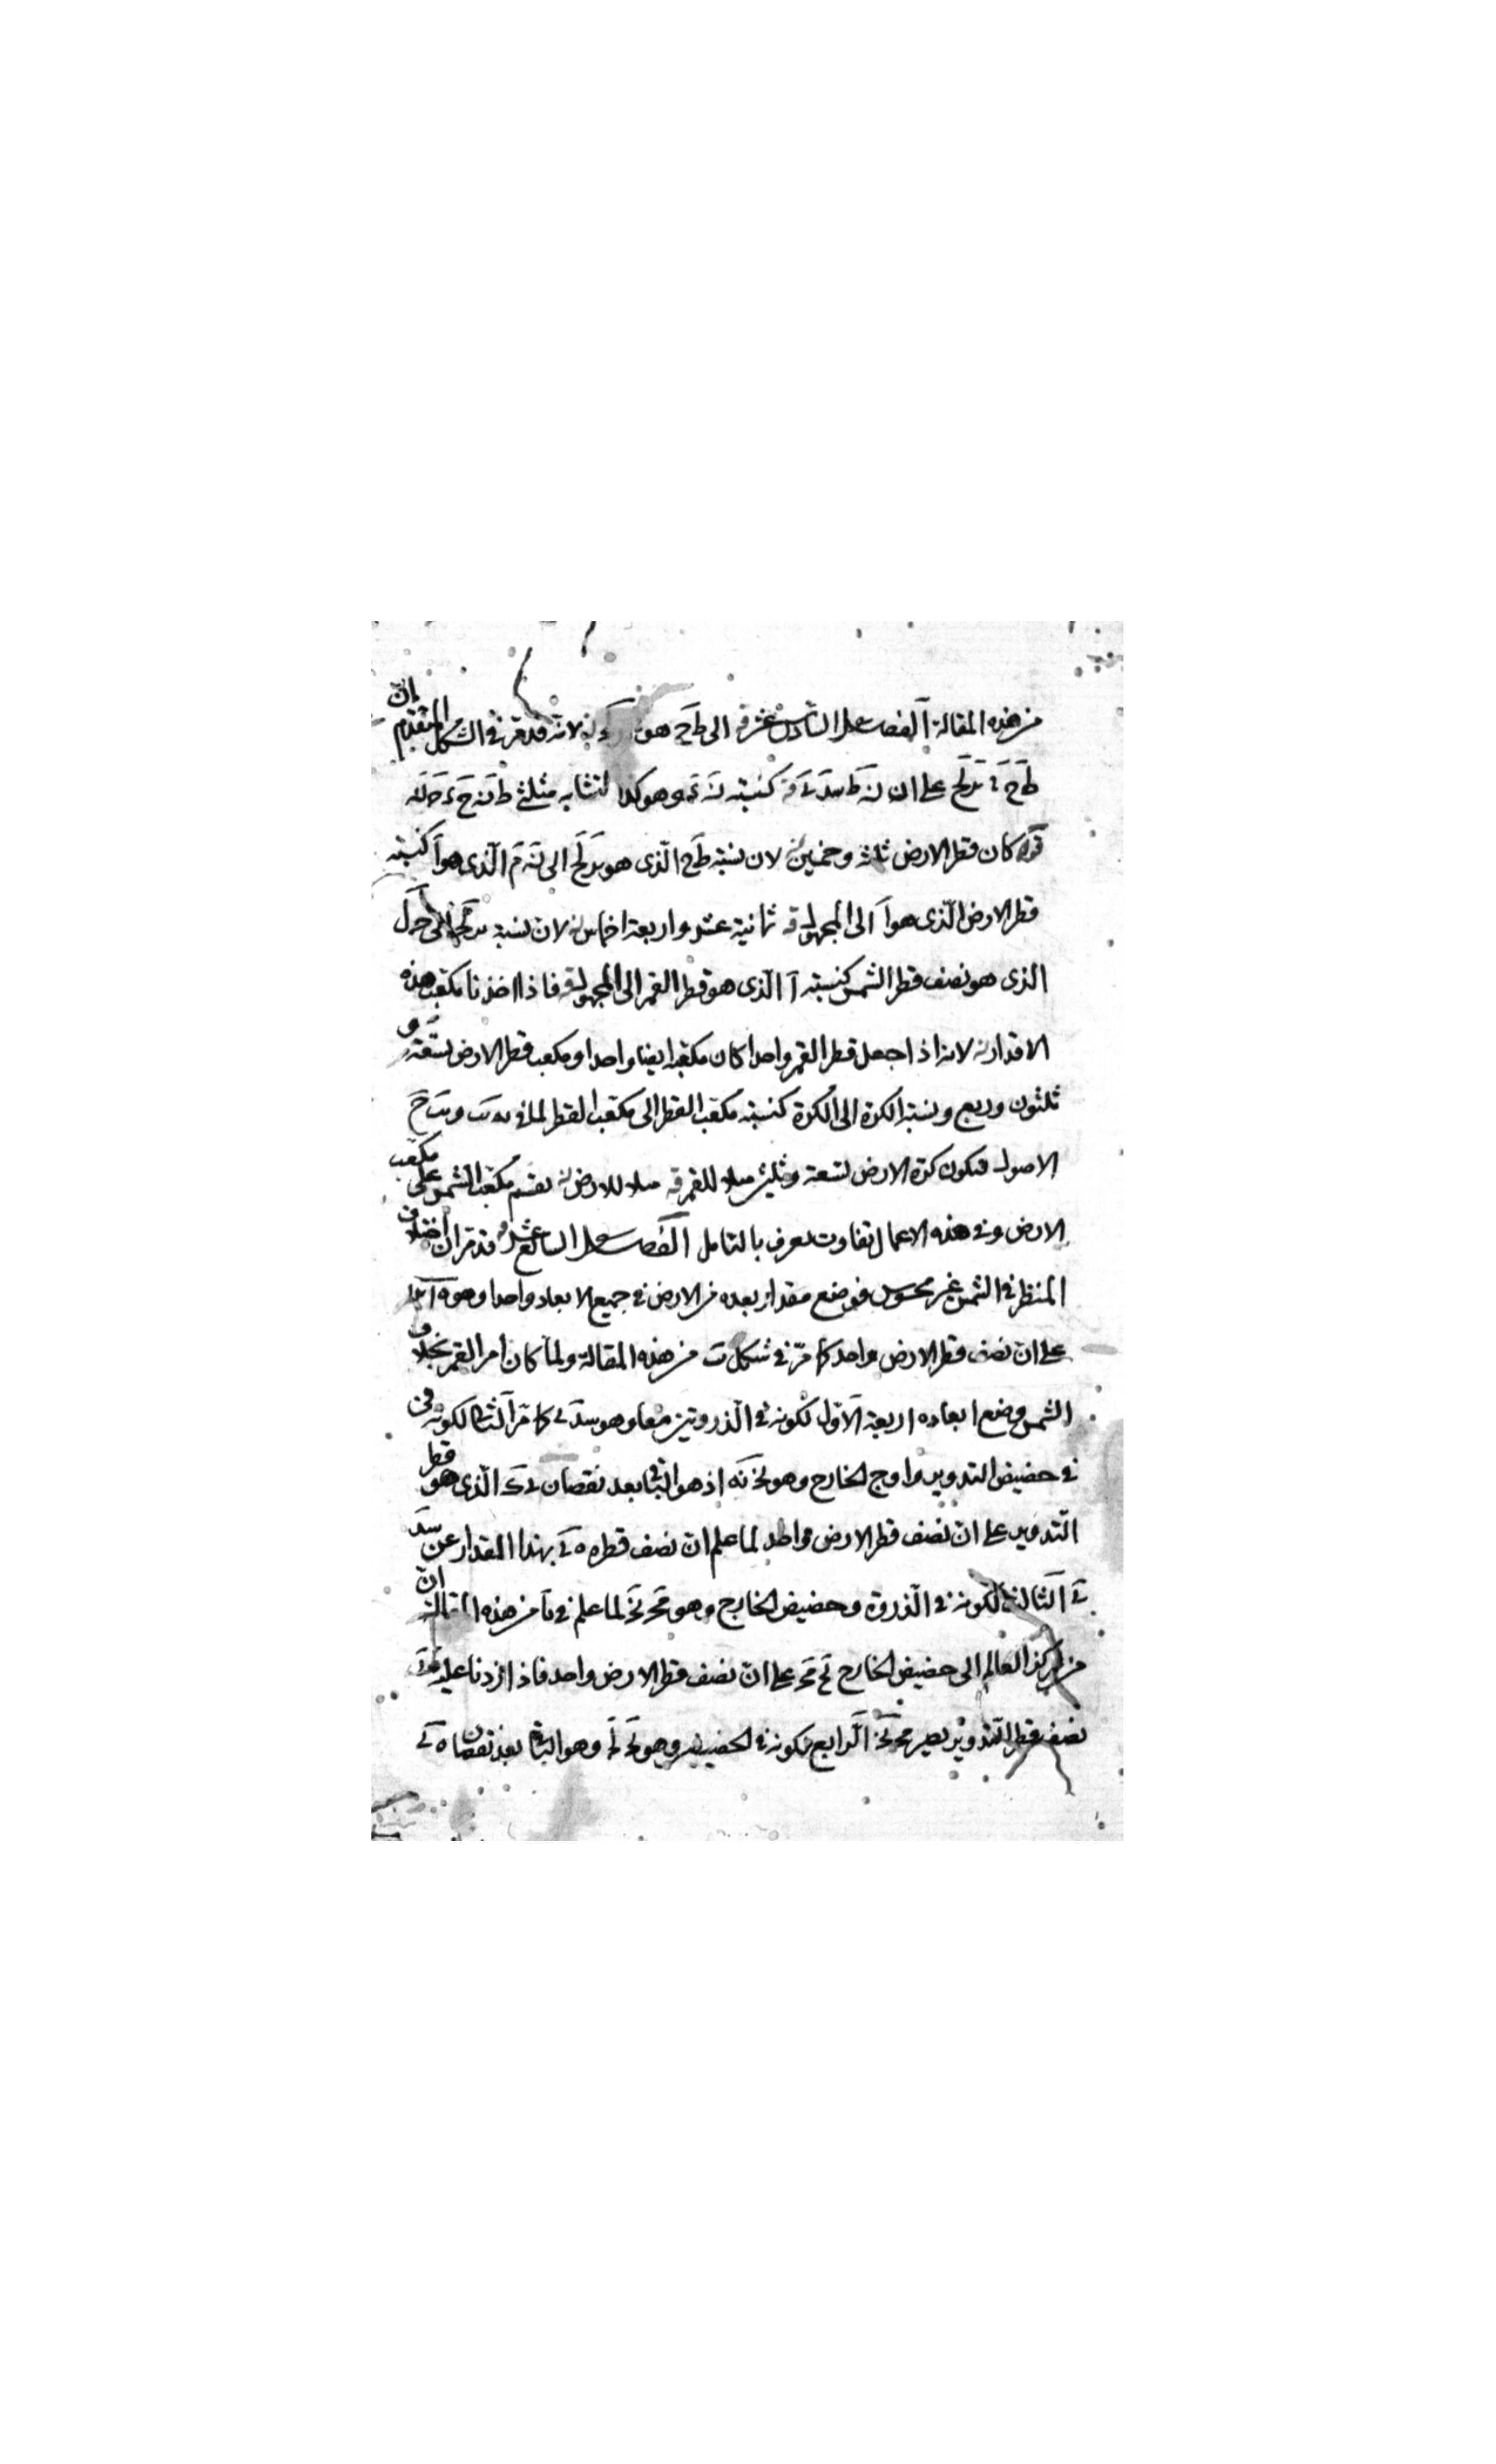 من هذه المقالة الفصل السادس عشر قه الى طح هو لانه قد مر في الشكل المتقدم ان
طح على ان نه كنسبة وهو كذا لتشابه مثلثي
قه كان قطر الارض ثلثة وخمسين لان نسبة طح الذى هو الى نم الذى هو ا كنسبة
قطر الارض الذى هو ا الى المجهول قه ثمانية عشر واربعة اخماس لان نسبة الى
الذى هو نصف قطر الشمس كنسبة ا الذى هو قطر القمر الى المجهول قه فاذا اخذنا مكعب هذه
الاقدار لانه اذا جعل قطر القمر واحدا كان مكعبه ايضا واحدا ومكعب قطر الارض تسعة و
ثلثون وربع ونسبة الكرة الى الكرة كنسبة مكعب القطر الى مكعب القطر لما في
الاصول فيكون كرة الارض تسعة وثلثين مثلا للقمر قه مثلا للارض يقسم مكعب الشمس على مكعب
الارض وفي هذه الاعمال تفاوت يعرف بالتامل الفصل السابع عشر قد مر ان اختلاف
المنظر في الشمس غير محسوس فوضع مقدار بعده من الارض في جميع الابعاد واحدا وهو
على ان نصف قطر الارض واحد كما مر في شكل من هذه المقالة ولما كان امر القمر بخلاف
الشمس وضع ابعاده اربعة الاول لكونه في الذروتين معا وهو سد ى كما مر الثانى لكونه في
في حضيض التدوير واوج الخارج وهو نج نه اذ هو الباقى بعد نقصان ى ك الذى هو قطر
التدوير على ان نصف قطر الارض واحد لما علم ان نصف قطره ه ى بهذا المقدار عن سد
ى الثالث لكونه في الذروة وحضيض الخارج وهو مج نج لما علم في من هذه المقالة ان
من مركز العالم الى حضيض الخارج لح مج على ان نصف قطر الارض واحد فاذا زدنا عليه
نصف قطر التدوير يصير مج نج الرابع لكونه في الحضيضين وهو لج لج وهو الباقى بعد نقصان ه ى